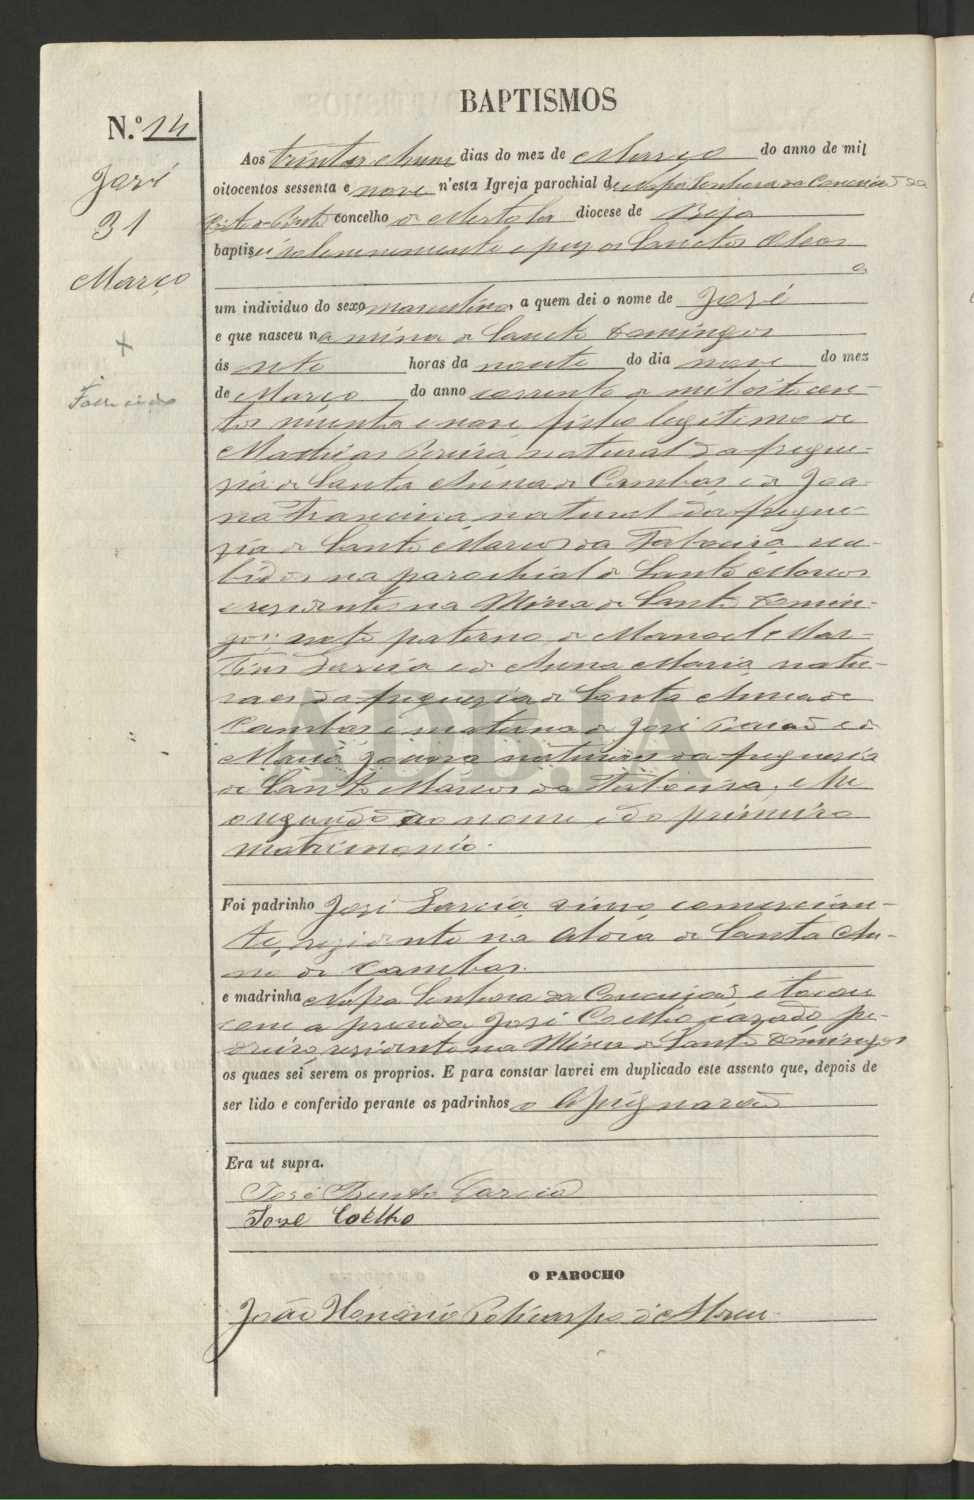 BAPTISMOS
N.º 14
José
31
Março
+
Fallecido
Aos trinta e hum dias do mez de Março do anno de mil
oitocentos sessenta e nove n'esta Igreja parochial de Nossa Senhora da Conceição da
concelho de Mertola diocese de Beja
baptisei solemnemente e puz os Sanctos Oleos
a
um individuo do sexo masculino, a quem dei o nome de José
e que nasceu na mina de Sancto Domingos
ás oito horas da noute do dia nove do mez
de Março do anno corrente de mil oitocen-
tos secenta e nove filho legitimo de
Mathias natural da fregue-
zia de Santa Anna de Cambas e de Joa-
na Francisca natural da fregue-
zia de Santo Marcos da Tabueira rece-
bidos na parochial de Santo Marcos
e rezidentes na Mina de Santo Domin-
gos: neto paterno de Manoel Mar-
tins Garcia e de Anna Maria natu-
raes da freguezia de Santa Anna de
Cambas e materno de José e de
Maria naturaes da freguezia
de Santo Marcos da Tabueira, e he
o segundo do nome e do primeiro
matrimonio.
ADBJA
Foi padrinho José Garcia viuvo comercian-
te, rezidente na Aldeia de Santa An-
na de Cambas.
e madrinha Nossa Senhora da Conceição e tocou
com a prenda José Coelho cazado pe-
dreiro rezidente na Mina de Santo Domingos
os quaes sei serem os proprios. E para constar lavrei em duplicado este assento que, depois de
ser lido e conferido perante os padrinhos o assignarão
Era ut supra.
José Bento Garcia
José Coelho
O PAROCHO
João Honorio Policarpo d'Abreu